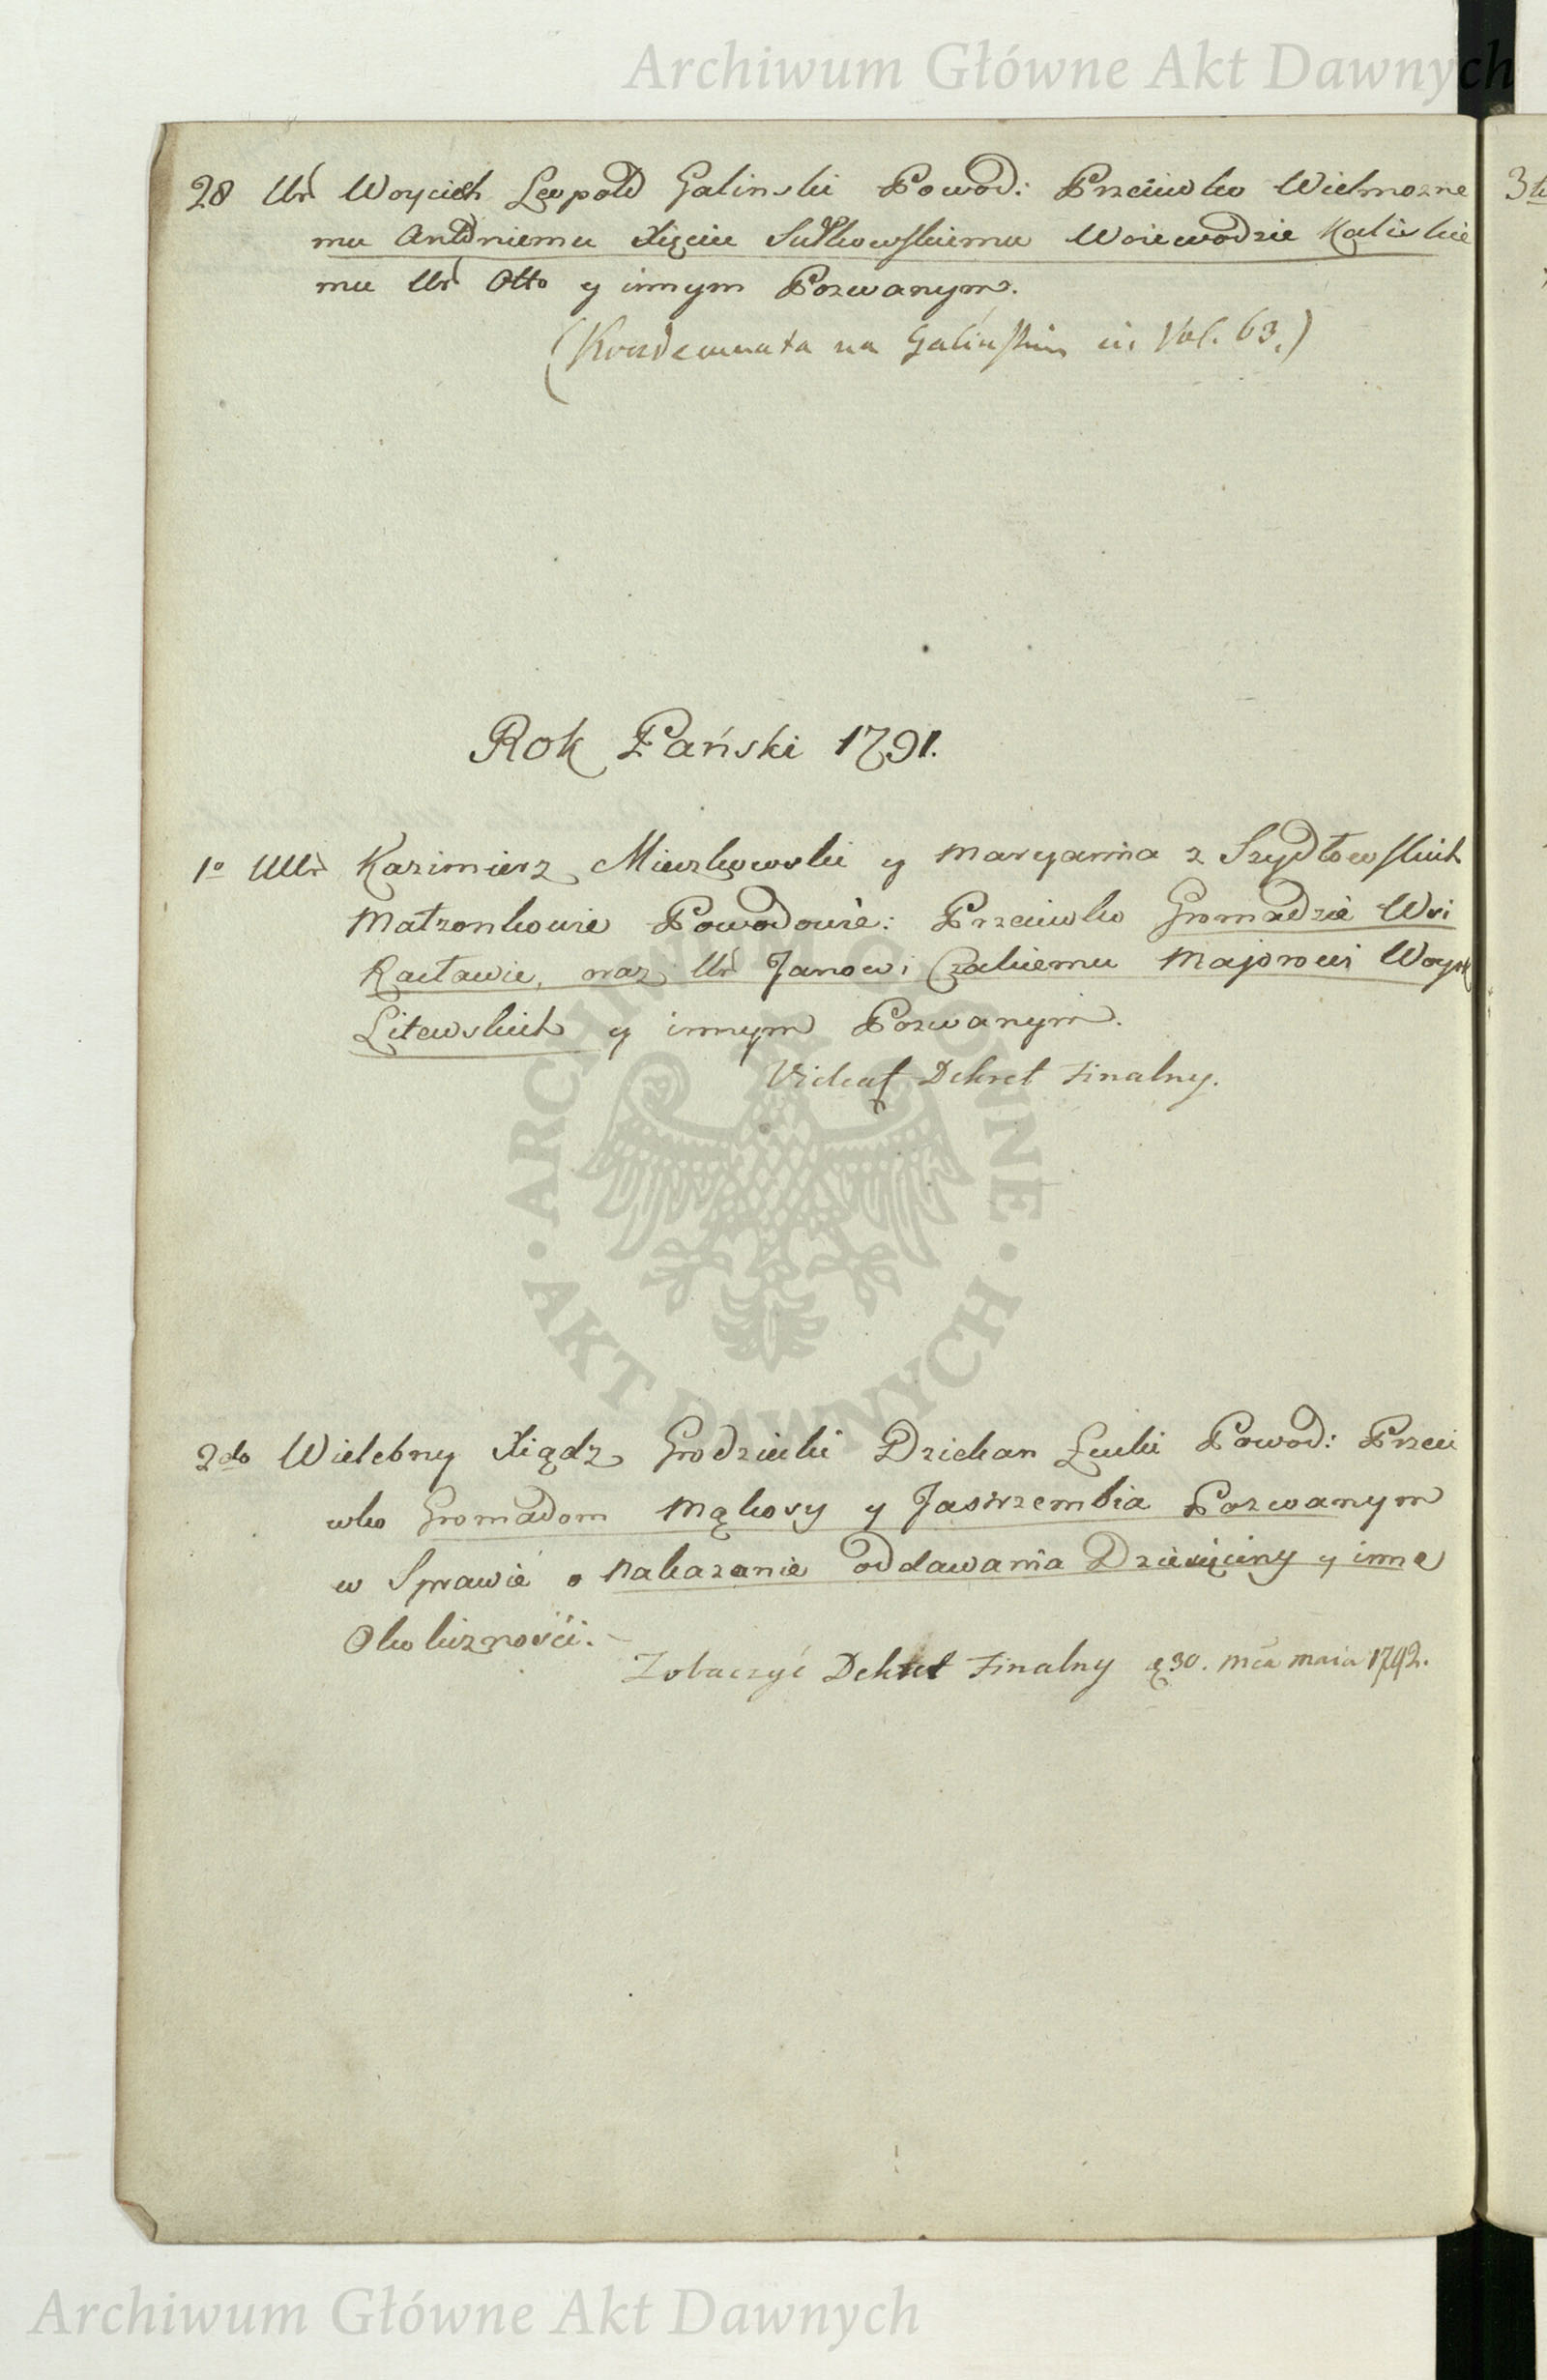 Archiwum Główne Akt Dawnych
28 Ur Woyciech Leopold Galinski Powod: Przeciwko Wielmozne
mu Antoniemu Xięciu Sułkowskiemu Woiewodzie Kaliskie
mu Ur Otto y innym Pozwanym.
(Kondemnata na Galińskim in Vol. 63.)
Rok Pański 1791.
1o UUr Kazimierz Mieszkowski y Maryanna z Szydłowskich
Małzonkowie Powodowie: Przeciwko Gromadzie Wsi
Racławic, oraz Ur Janowi Czakiemu Majorowi Woysk
Litewskich y innym Pozwanym.
Dekret Finalny.
2do Wielebny Xiądz Grodzicki Dziekan Łucki Powod: Przeci
wko Gromadom Mąkosy y Jastrzembia Pozwanym
w Sprawie o nakazanie oddawania Dziesięciny y inne
Okoliczności.
Zobaczyć Dekret Finalny 30. mca maia 1792.
ARCHIWUM GŁÓWNE · AKT DAWNYCH ·
Archiwum Główne Akt Dawnych